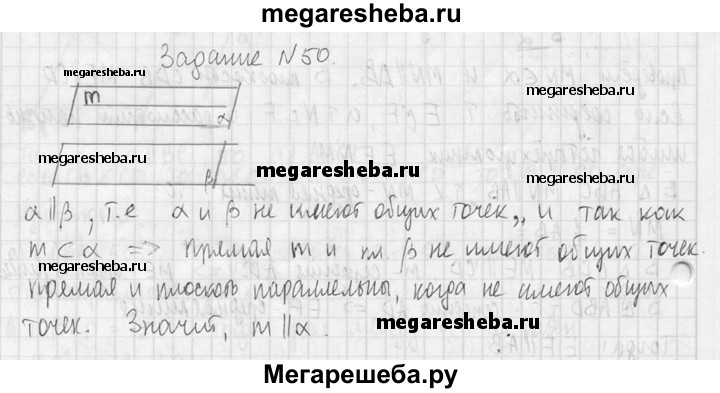 megaresheba.ru
Задание N50.
megaresheba.ru
m
megaresheba.ru
α
megaresheba.ru
megaresheba.ru
megaresheba.ru
β
α∥β, т.е α и β не имеют общих точек,, и так как
m⊂α => прямая m и пл. β не имеют общих точек.
Прямая и плоскость параллельны, когда не имеют общих
точек. Значит, m∥α.
megaresheba.ru
Мегарешеба.ру